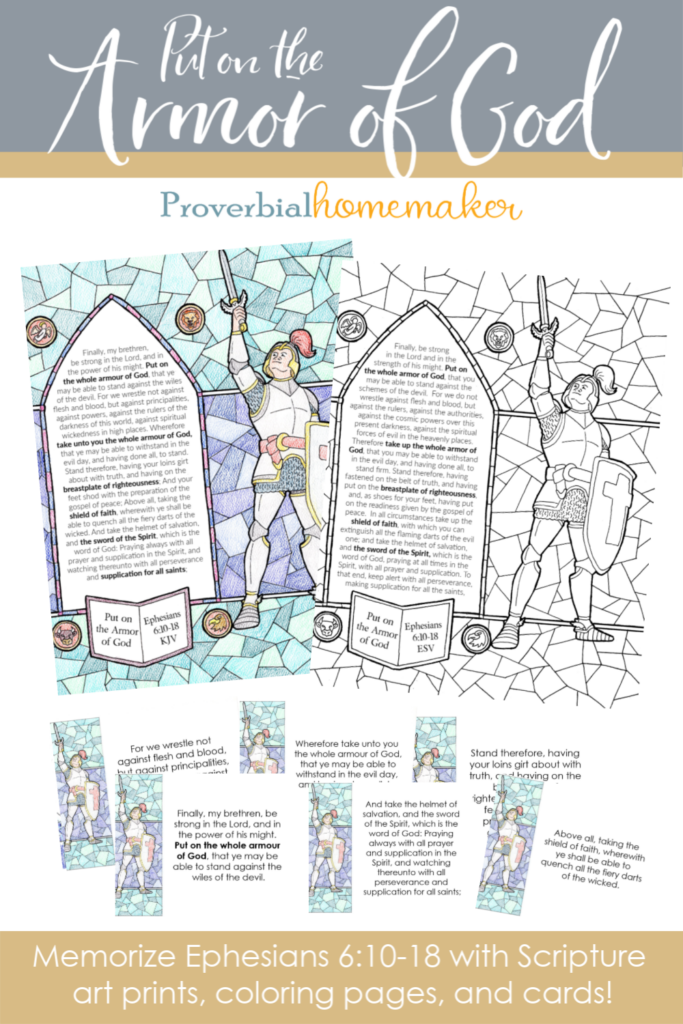 Put on the
Armor of God
Proverbialhomemaker
Finally, my brethren,
be strong in the Lord, and in
the power of his might. Put on
the whole armour of God, that ye
may be able to stand against the wiles
of the devil. For we wrestle not against
flesh and blood, but against principalities,
against powers, against the rulers of the
darkness of this world, against spiritual
wickedness in high places. Wherefore
take unto you the whole armour of God,
that ye may be able to withstand in the
evil day, and having done all, to stand.
Stand therefore, having your loins girt
about with truth, and having on the
breastplate of righteousness; And your
feet shod with the preparation of the
gospel of peace; Above all, taking the
shield of faith, wherewith ye shall be
able to quench all the fiery darts of the
wicked. And take the helmet of salvation,
and the sword of the Spirit, which is the
word of God: Praying always with all
prayer and supplication in the Spirit, and
watching thereunto with all perseverance
and supplication for all saints;
Put on
the Armor
of God
Ephesians
6:10-18
KJV
Finally, be strong
in the Lord and in the
strength of his might. Put on
the whole armor of God, that you
may be able to stand against the
schemes of the devil. For we do not
wrestle against flesh and blood, but
against the rulers, against the authorities,
against the cosmic powers over this
present darkness, against the spiritual
forces of evil in the heavenly places.
Therefore take up the whole armor of
God, that you may be able to withstand
in the evil day, and having done all, to
stand firm. Stand therefore, having
fastened on the belt of truth, and having
put on the breastplate of righteousness,
and, as shoes for your feet, having put
on the readiness given by the gospel of
peace. In all circumstances take up the
shield of faith, with which you can
extinguish all the flaming darts of the evil
one; and take the helmet of salvation,
and the sword of the Spirit, which is the
word of God, praying at all times in the
Spirit, with all prayer and supplication. To
that end, keep alert with all perseverance,
making supplication for all the saints,
Put on
the Armor
of God
Ephesians
6:10-18
ESV
For we wrestle not
against flesh and blood,
but against principalities,
against
Wherefore take unto you
the whole armour of God,
that ye may be able to
withstand in the evil day,
Stand therefore, having
your loins girt about with
truth, and having on the
Finally, my brethren, be
strong in the Lord, and in
the power of his might.
Put on the whole armour
of God, that ye may be
able to stand against the
wiles of the devil.
And take the helmet of
salvation, and the sword
of the Spirit, which is the
word of God: Praying
always with all prayer
and supplication in the
Spirit, and watching
thereunto with all
perseverance and
supplication for all saints;
Above all, taking the
shield of faith, wherewith
ye shall be able to
quench all the fiery darts
of the wicked.
Memorize Ephesians 6:10-18 with Scripture
art prints, coloring pages, and cards!